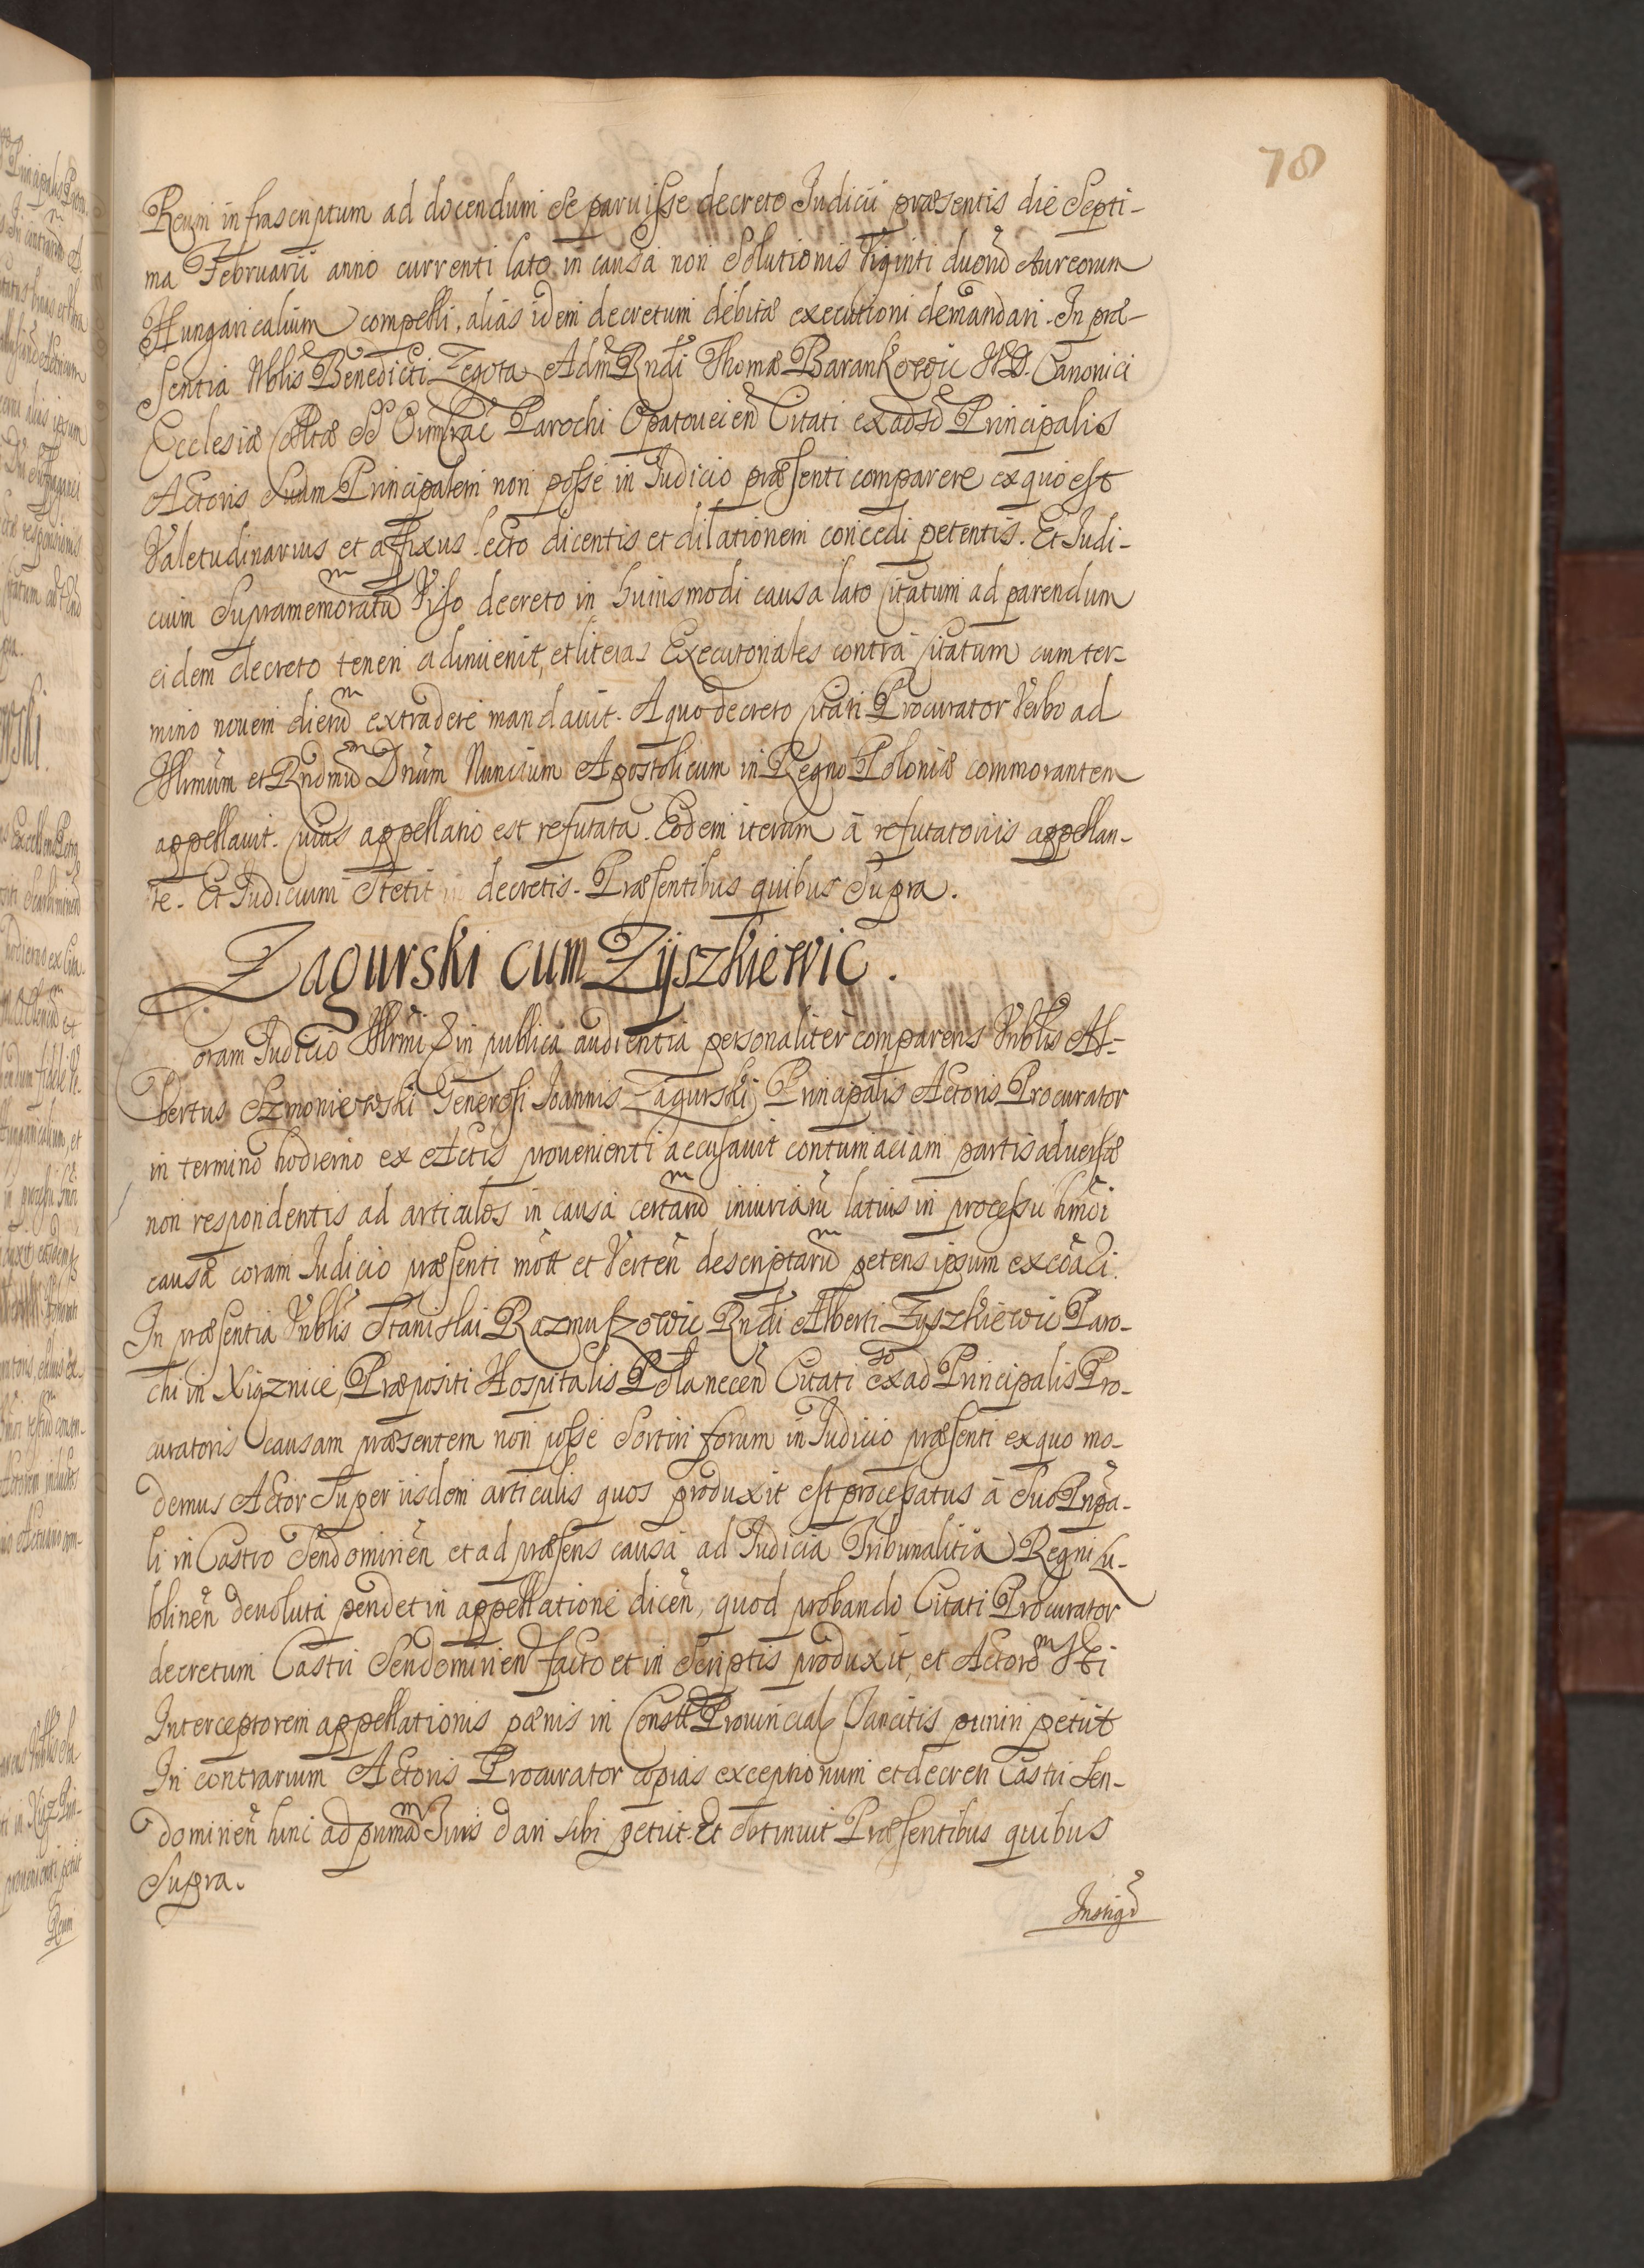 78
Reum infrascriptum ad docendum se paruisse decreto Judicii præsentis die Septi-
ma Februarii anno currenti lato in causa non Solutionis Viginti duorũ Aureorum
Hungaricalium compelli, alias idem decretum debitæ executioni demandari. In præ-
sentia Nblis Benedicti Zegota Adm Rndi Thomæ Barankowic Canonici
Ecclesiæ Colltæ SS Parochi Opatouien Citati ex adso Principalis
Actoris suum Principalem non posse in Judicio præsenti comparere ex quo est
Valetudinarius et affixus lecto dicentis et dilationem concedi petentis. Et Judi-
cium supramemoratũ Viso decreto in huiusmodi causa lato citatum ad parendum
eidem decreto teneri adinuenit, et literas Executoriales contra citatum cum ter-
mino nouem dierũ extradere mandauit. A quo decreto citati Procurator Verbo ad
Illmum et Rndmũ Dnum Nuncium Apostolicum in Regno Poloniæ commorantem
appellauit. cuius appellatio est refutata. Eodem iterum à refutatoriis appellan-
te. Et Judicium Stetit in decretis. Præsentibus quibus Supra.
Zagurski cum Zyszkiewic.
Coram Judicio Illmi in publica audientia personaliter comparens Nblis Al-
bertus Szmoniewski Generosi Joannis Zagurski Principalis Actoris Procurator
in termino hodierno ex Actis prouenienti accusauit contumaciam partis aduersæ
non respondentis ad articulos in causa certarũ iniuriarũ latius in processu hmdi
causæ coram Judicio præsenti mott et Verten descriptarũ petens ipsum excõãri.
In præsentia Nblis Stanislai Razmuszowic Rndi Alberti Zyszkiewic Paro-
chi in Xiąznice, Præpositi Hospitalis Połanecen Citati ex adso Principalis Pro-
curatoris causam præsentem non posse sortiri forum in Judicio præsenti ex quo mo-
dernus Actor Super iisdem articulis quos produxit est processatus à suo Prĩpa-
li in Castro Sendomirien et ad præsens causa ad Judicia Tribunalitia Regni Lu-
blinen deuoluta pendet in appellatione dicen, quod probando Citati Procurator
decretum Castri Sendomirien facto et in Scriptis produxit, et Actorẽ
Interceptorem appellationis pænis in Constt Prouincial Sancitis puniri petiit
In contrarium Actoris Procurator copias exceptionum et decreti Castri Sen-
domirien hinc ad primã Juris dari sibi petiit. Et obtinuit Præsentibus quibus
Supra.
Instigõ